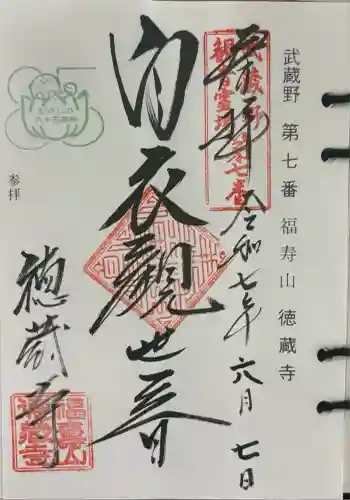 武蔵野 第七番 福寿山 徳蔵寺
奉拝 令和七年 六月 七日
武蔵野
観音霊場
第七番
白衣観世音
徳蔵寺
参拝
福寿山
徳蔵寺